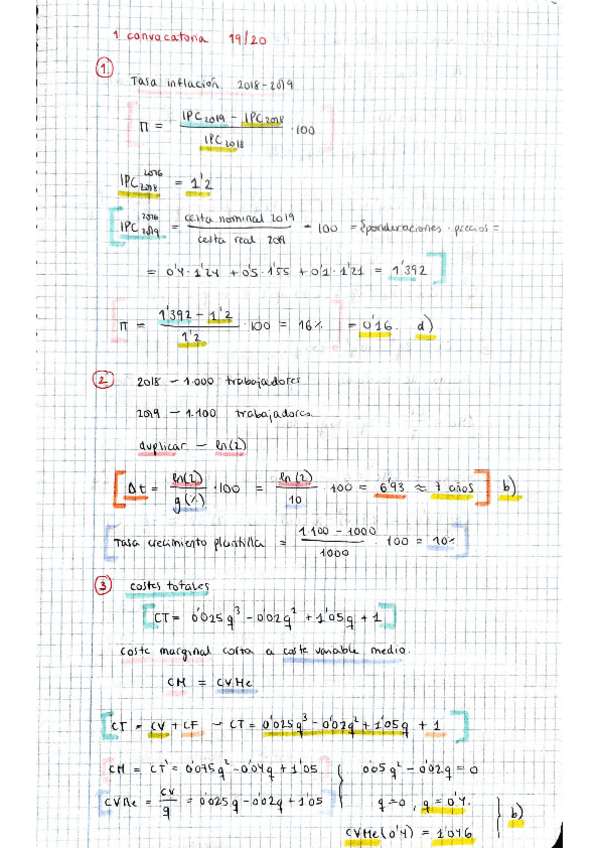 1 convocatoria 19/20
1
Tasa inflación 2018-2019
Π = IPC2019 - IPC2018 / IPC2018 · 100
IPC 2016 2018 = 1'2
IPC 2016 2019 = cesta nominal 2019 / cesta real 2019 - 100 = Σponduraciones · precios =
= 0'4 · 1'24 + 0'5 · 1'55 + 0'1 · 1'21 = 1'392
Π = 1'392 - 1'2 / 1'2 · 100 = 16% = 0'16. d)
2 2018 - 1.000 trabajadores
2019 - 1.100 trabajadores
duplicar - ln(2)
Δt = ln(2) / g(%) · 100 = ln(2) / 10 · 100 = 6'93 ≈ 7 años b)
Tasa crecimiento plantilla = 1.100 - 1000 / 1000 · 100 = 10%
3 costes totales
CT = 0'025q³ - 0'02q² + 1'05q + 1
coste marginal corta a coste variable medio.
CM = CVMe
CT = CV + CF - CT = 0'025q³ - 0'02q² + 1'05q + 1
CM = CT' = 0'075q² - 0'04q + 1'05 } 0'05q² - 0'02q = 0
CVMe = CV / q = 0'025q - 0'02q + 1'05 q = 0, q = 0'4. } b)
CVMe(0'4) = 1'046